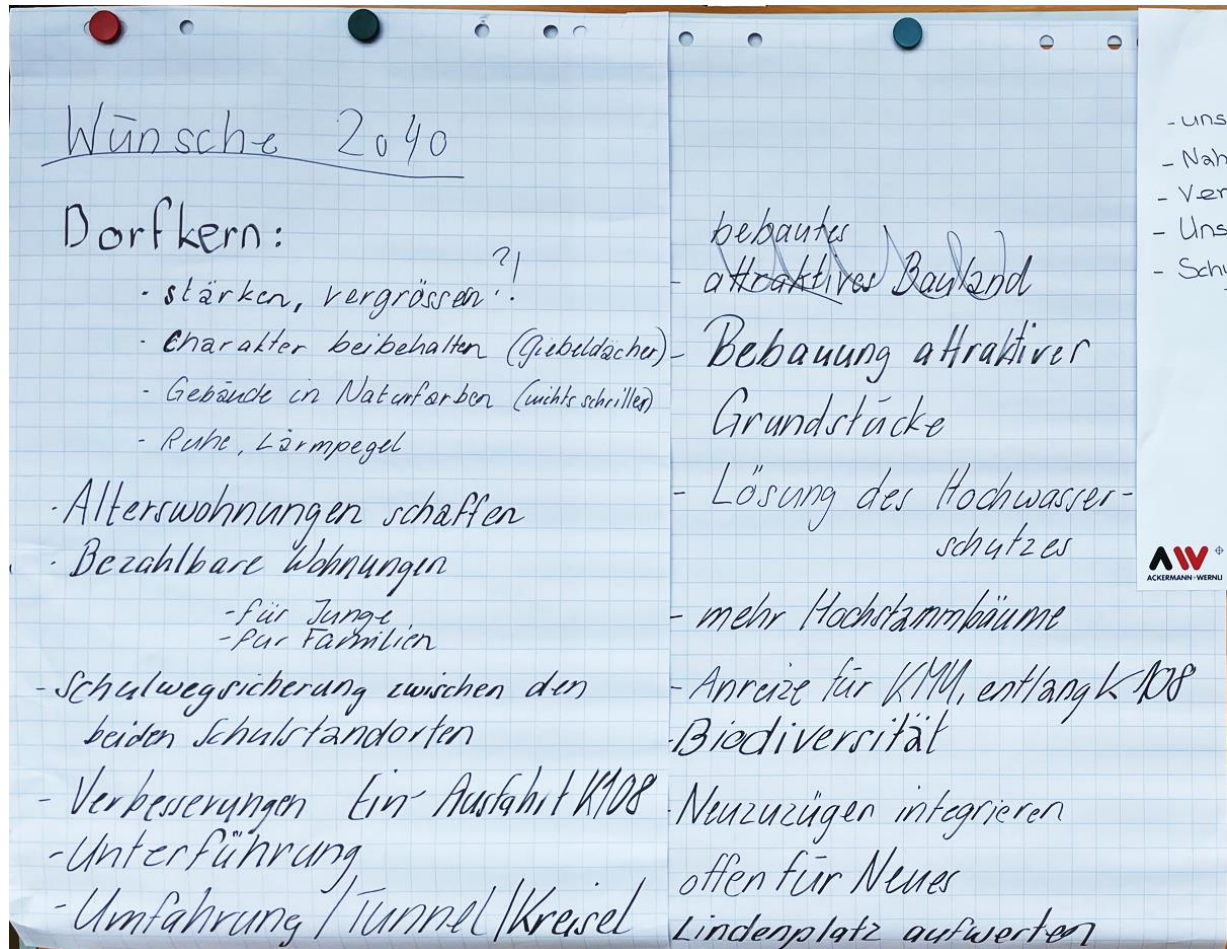 Wünsche 2040
Dorfkern:
- stärken, vergrössern ?!
- Charakter beibehalten (Giebeldächer)
- Gebäude in Naturfarben (nichts schrilles)
- Ruhe, Lärmpegel
- Alterswohnungen schaffen
- Bezahlbare Wohnungen
- für Junge
- für Familien
- Schulwegsicherung zwischen den
beiden Schulstandorten
- Verbesserungen Ein- Ausfahrt K108
- Unterführung
- Umfahrung / Tunnel / Kreisel
bebautes
- attraktives Bauland
- Bebauung attraktiver
Grundstücke
- Lösung des Hochwasser-
schutzes
- mehr Hochstammbäume
- Anreize für KMU, entlang K108
- Biodiversität
- Neuzuzüger integrieren
offen für Neues
Lindenplatz aufwerten
- uns
- Nah
- Ver
- Uns
- Schu
AW
ACKERMANN+WERNLI